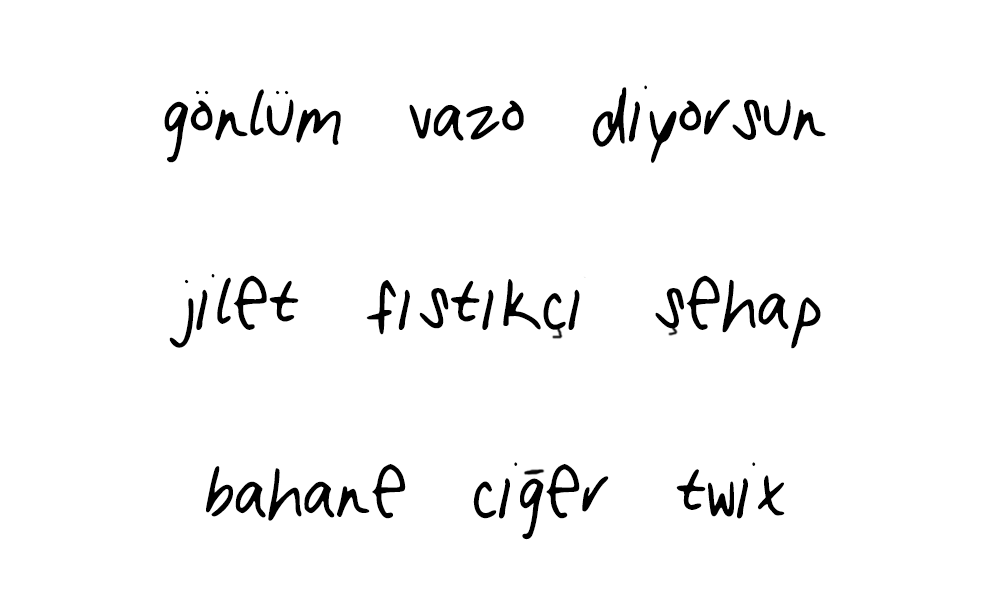 gönlüm vazo diyorsun
jilet fıstıkçı şehap
bahane ciğer twix